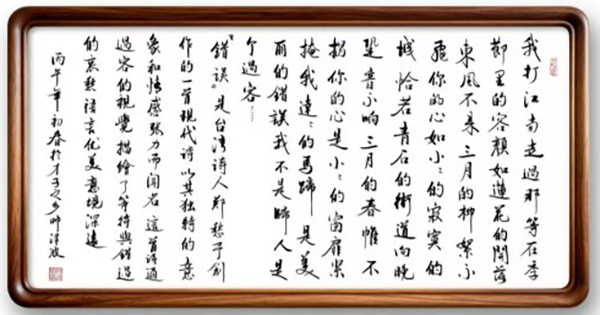 我打江南走過那等在季
節里的容顏如蓮花的開落
東風不來三月的柳絮不
飛你的心如小〻的寂寞的
城恰若青石的街道向晚
跫音不响三月的春帷不
揭你的心是小〻的窗扉紧
掩我達〻的馬蹄是美
丽的錯誤我不是歸人是
个過客……
"錯误"是台湾诗人郑愁予创
作的一首現代诗以其独特的意
象和情感張力而闻名這首诗通
過客的視覺描繪了等待與錯過
的哀愁語言优美意境深遠
丙午年初春於才子之乡帅